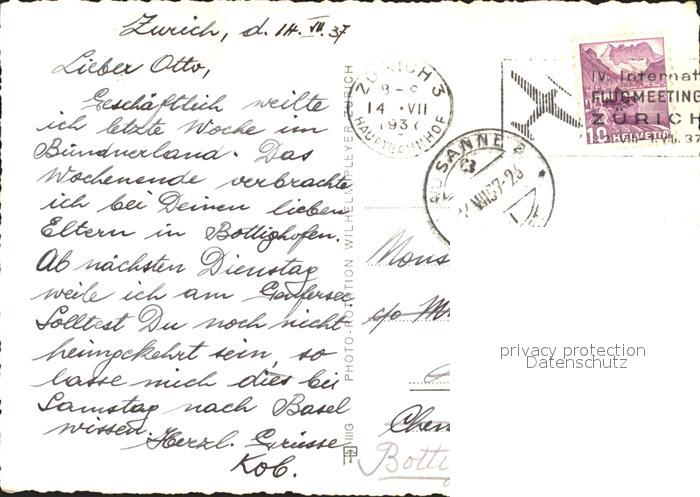 Zurich, d. 14. VII. 37
Lieber Otto,
Geschäftlich weilte
ich letzte Woche im
Bündnerland. Das
Wochenende verbrachte
ich bei Deinen lieben
Eltern in Bottighofen.
Ab nächsten Dienstag
weile ich am Genfersee
Solltest Du noch nicht
heimgekehrt sein, so
lasse mich dies bis
Samstag nach Basel
wissen.
Herzl. Grüsse
Kob.
PHOTO-ROTATION WILHELM PLEYER, ZÜRICH
ZÜRICH 3
14. VII
1937
HAUPTBAHNHOF
IV. Internat
FLUGMEETING
ZÜRICH
VII. 37
10 HELVETIA
Mons
c/o
Chem
Botti
privacy protection
Datenschutz